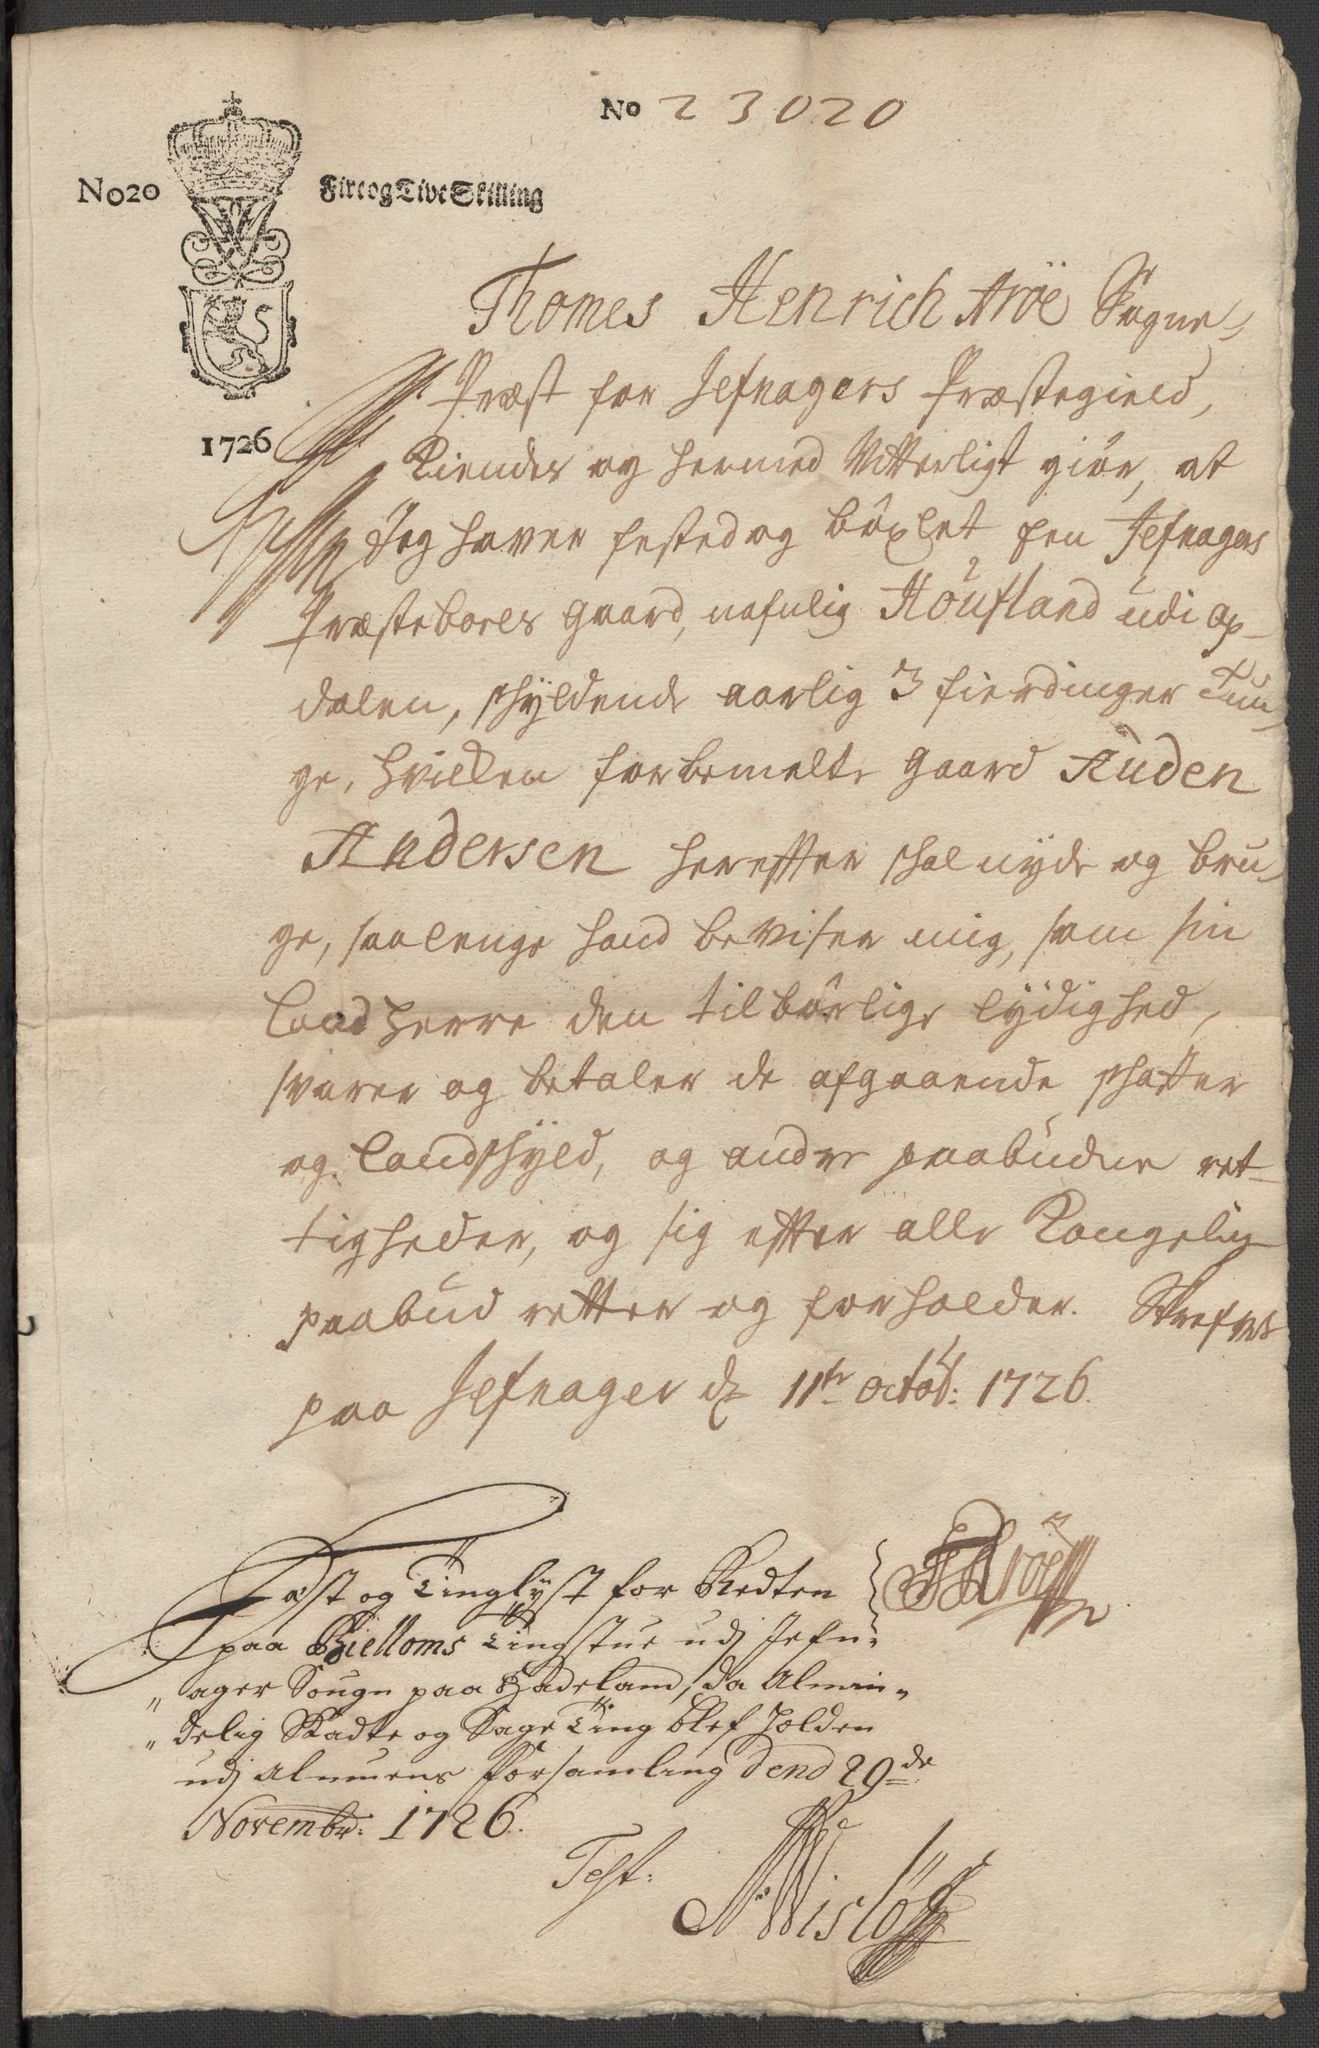 No 23020
No 20
Fire og Tive Skilling
1726
Thomes Henrich Aröe Sogne-
Præst for Jefnagers Præstegield,
Kiendes og hermed Vitterligt giör, at
Jeg haver fested og böxlet een Jefnagers
Præsteboels gaard, nafnlig Höufland udi Op-
dalen, schÿldende aarlig 3 fierdinger Tun-
ge, hvilken forbemelte gaard Auden
Andersen herefter schal nyde og bru-
ge, saa lenge hand beviser mig, som sin
landherre den tilbörlige lÿdighed,
svarer og betaler de afgaaende schatter
og landschÿld, og andre paabudne ret-
tigheder, og sig efter alle Kongelig
paabud retter og forholder. Skrefvet
paa Jefnager d. 11te octob: 1726.
THAröe
Læst og Tinglÿst for Redten
paa Bielloms Tingstue udj Jefn-
ager Sougn paa Hadeland, da Almin-
delig Skadte og Sage Ting blef holden
udj Almuens Forsamling dend 29de
Novembr: 1726.
Test.
N Wislöff